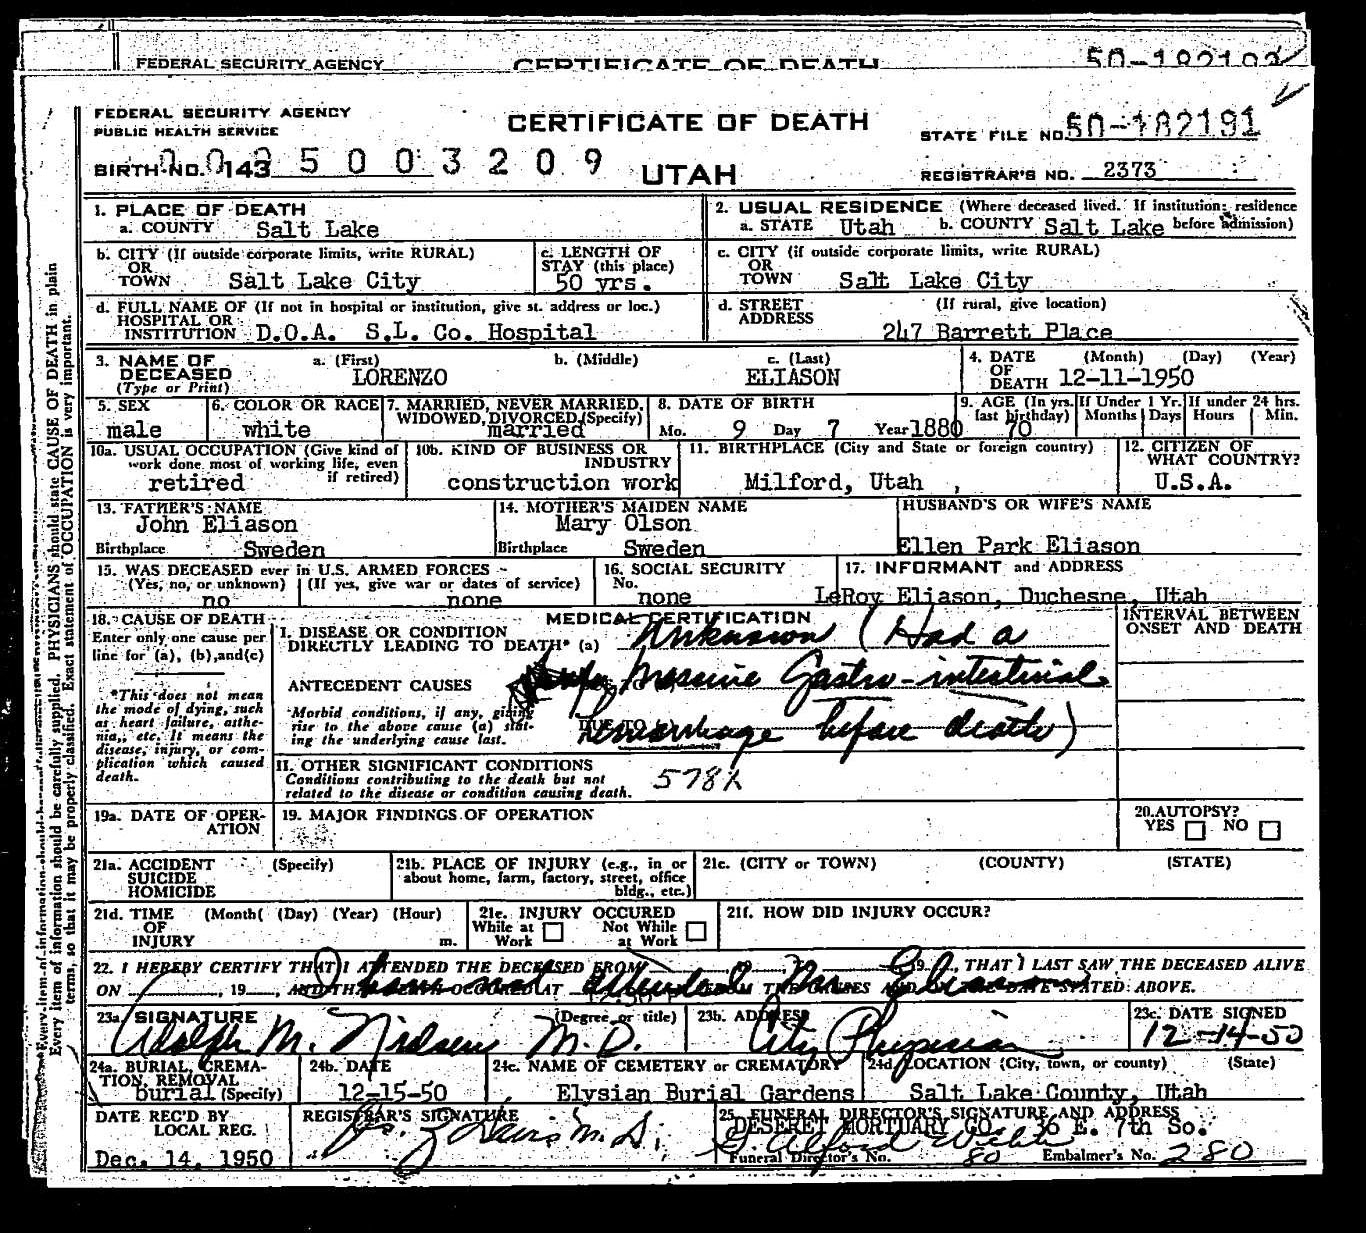 FEDERAL SECURITY AGENCY CERTIFICATE OF DEATH 50-182192
FEDERAL SECURITY AGENCY
PUBLIC HEALTH SERVICE
CERTIFICATE OF DEATH
STATE FILE NO. 50-182191
BIRTH NO. 143 5 0 0 3 2 0 9
UTAH
REGISTRAR'S NO. 2373
1. PLACE OF DEATH
a. COUNTY Salt Lake
2. USUAL RESIDENCE (Where deceased lived. If institution: residence before admission)
a. STATE Utah b. COUNTY Salt Lake
b. CITY (If outside corporate limits, write RURAL)
OR
TOWN Salt Lake City
c. LENGTH OF
STAY (this place)
50 yrs.
c. CITY (if outside corporate limits, write RURAL)
OR
TOWN Salt Lake City
d. FULL NAME OF (If not in hospital or institution, give st. address or loc.)
HOSPITAL OR
INSTITUTION D.O.A. S.L. Co. Hospital
d. STREET (If rural, give location)
ADDRESS
247 Barrett Place
3. NAME OF DECEASED (Type or Print)
a. (First) b. (Middle) c. (Last)
LORENZO ELIASON
4. DATE OF DEATH (Month) (Day) (Year)
12-11-1950
5. SEX
male
6. COLOR OR RACE
white
7. MARRIED, NEVER MARRIED,
WIDOWED, DIVORCED (Specify)
married
8. DATE OF BIRTH
Mo. 9 Day 7 Year 1880
9. AGE (In yrs. last birthday)
70
If Under 1 Yr. Months Days
If under 24 hrs. Hours Min.
10a. USUAL OCCUPATION (Give kind of
work done most of working life, even
if retired)
retired
10b. KIND OF BUSINESS OR
INDUSTRY
construction work
11. BIRTHPLACE (City and State or foreign country)
Milford, Utah ,
12. CITIZEN OF
WHAT COUNTRY?
U.S.A.
13. FATHER'S NAME
John Eliason
Birthplace Sweden
14. MOTHER'S MAIDEN NAME
Mary Olson
Birthplace Sweden
HUSBAND'S OR WIFE'S NAME
Ellen Park Eliason
15. WAS DECEASED ever in U.S. ARMED FORCES
(Yes, no, or unknown) (If yes, give war or dates of service)
no none
16. SOCIAL SECURITY
No.
none
17. INFORMANT and ADDRESS
LeRoy Eliason, Duchesne, Utah
18. CAUSE OF DEATH
Enter only one cause per
line for (a), (b), and (c)
*This does not mean
the mode of dying, such
as heart failure, asthe-
nia,, etc. It means the
disease, injury, or com-
plication which caused
death.
MEDICAL CERTIFICATION
I. DISEASE OR CONDITION
DIRECTLY LEADING TO DEATH* (a) Unknown (Had a
ANTECEDENT CAUSES massive Gastro-intestinal
Morbid conditions, if any, giving
rise to the above cause (a) stat-
ing the underlying cause last.
DUE TO
hemorrhage before death)
INTERVAL BETWEEN
ONSET AND DEATH
II. OTHER SIGNIFICANT CONDITIONS
Conditions contributing to the death but not
related to the disease or condition causing death.
578X
19a. DATE OF OPER-
ATION
19. MAJOR FINDINGS OF OPERATION
20. AUTOPSY?
YES NO
21a. ACCIDENT (Specify)
SUICIDE
HOMICIDE
21b. PLACE OF INJURY (e.g., in or
about home, farm, factory, street, office
bldg., etc.)
21c. (CITY or TOWN) (COUNTY) (STATE)
21d. TIME (Month( (Day) (Year) (Hour)
OF
INJURY m.
21e. INJURY OCCURED
While at Work Not While at Work
21f. HOW DID INJURY OCCUR?
22. I HEREBY CERTIFY THAT I ATTENDED THE DECEASED FROM 19 , THAT I LAST SAW THE DECEASED ALIVE
I have not attended Mr Eliason
ON , 19 , AND THAT DEATH OCCURED AT FROM THE CAUSES AND ON THE DATE STATED ABOVE.
23a. SIGNATURE (Degree or title)
Adolph M. Nielsen M.D.
23b. ADDRESS
City Physician
23c. DATE SIGNED
12-14-50
24a. BURIAL, CREMA-
TION, REMOVAL
burial (Specify)
24b. DATE
12-15-50
24c. NAME OF CEMETERY or CREMATORY
Elysian Burial Gardens
24d. LOCATION (City, town, or county) (State)
Salt Lake County, Utah
DATE REC'D BY
LOCAL REG.
Dec. 14, 1950
REGISTRAR'S SIGNATURE
25. FUNERAL DIRECTOR'S SIGNATURE AND ADDRESS
DESERET MORTUARY CO. 36 E. 7th So.
Funeral Director's No. 80 Embalmer's No. 280
Every item of information should be carefully supplied. PHYSICIANS should state CAUSE OF DEATH in plain
terms, so that it may be properly classified. Exact statement of OCCUPATION is very important.